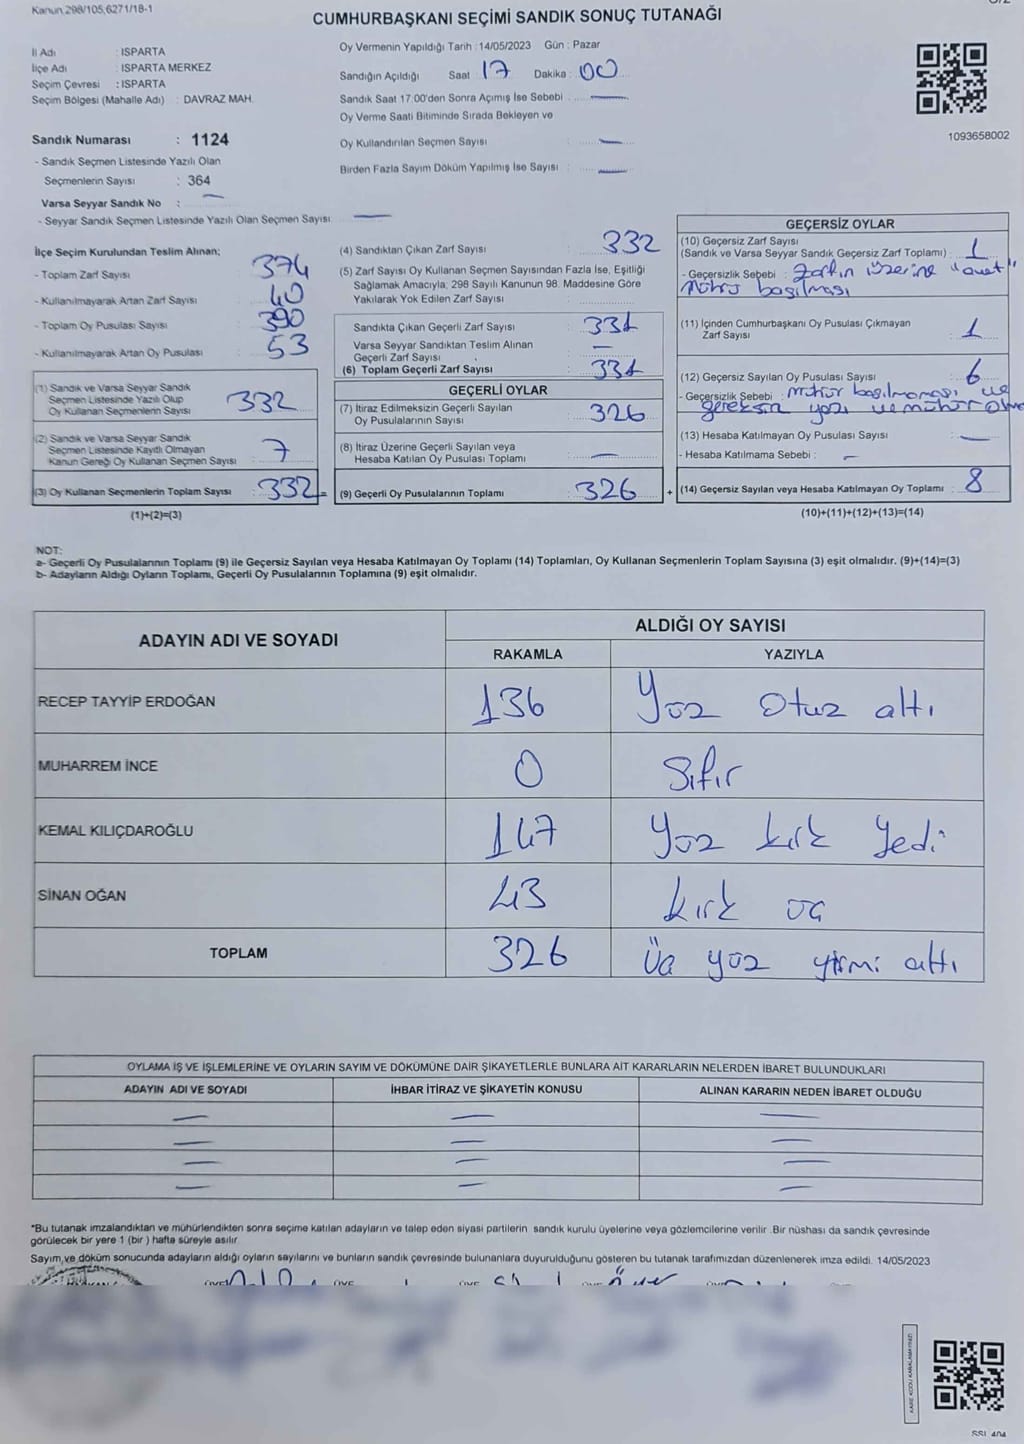 Kanun 298/105,6271/18-1
CUMHURBAŞKANI SEÇİMİ SANDIK SONUÇ TUTANAĞI
İl Adı : ISPARTA
İlçe Adı : ISPARTA MERKEZ
Seçim Çevresi : ISPARTA
Seçim Bölgesi (Mahalle Adı) : DAVRAZ MAH.
Sandık Numarası : 1124
- Sandık Seçmen Listesinde Yazılı Olan
Seçmenlerin Sayısı : 364
Varsa Seyyar Sandık No : —
- Seyyar Sandık Seçmen Listesinde Yazılı Olan Seçmen Sayısı : —
Oy Vermenin Yapıldığı Tarih : 14/05/2023 Gün : Pazar
Sandığın Açıldığı Saat 17 Dakika : 00
Sandık Saat 17:00'den Sonra Açımış İse Sebebi : —
Oy Verme Saati Bitiminde Sırada Bekleyen ve
Oy Kullandırılan Seçmen Sayısı : —
Birden Fazla Sayım Döküm Yapılmış İse Sayısı : —
1093658002
İlçe Seçim Kurulundan Teslim Alınan;
- Toplam Zarf Sayısı : 374
- Kullanılmayarak Artan Zarf Sayısı : 40
- Toplam Oy Pusulası Sayısı : 390
- Kullanılmayarak Artan Oy Pusulası : 53
(1) Sandık ve Varsa Seyyar Sandık
Seçmen Listesinde Yazılı Olup
Oy Kullanan Seçmenlerin Sayısı : 332
(2) Sandık ve Varsa Seyyar Sandık
Seçmen Listesinde Kayıtlı Olmayan
Kanun Gereği Oy Kullanan Seçmen Sayısı : 7
(3) Oy Kullanan Seçmenlerin Toplam Sayısı : 332 =
(1)+(2)=(3)
(4) Sandıktan Çıkan Zarf Sayısı : 332
(5) Zarf Sayısı Oy Kullanan Seçmen Sayısından Fazla İse, Eşitliği
Sağlamak Amacıyla, 298 Sayılı Kanunun 98. Maddesine Göre
Yakılarak Yok Edilen Zarf Sayısı :
Sandıkta Çıkan Geçerli Zarf Sayısı : 331
Varsa Seyyar Sandıktan Teslim Alınan
Geçerli Zarf Sayısı : —
(6) Toplam Geçerli Zarf Sayısı : 331
GEÇERLİ OYLAR
(7) İtiraz Edilmeksizin Geçerli Sayılan
Oy Pusulalarının Sayısı : 326
(8) İtiraz Üzerine Geçerli Sayılan veya
Hesaba Katılan Oy Pusulası Toplamı : —
(9) Geçerli Oy Pusulalarının Toplamı : 326 +
GEÇERSİZ OYLAR
(10) Geçersiz Zarf Sayısı
(Sandık ve Varsa Seyyar Sandık Geçersiz Zarf Toplamı) : 1
- Geçersizlik Sebebi : Zarfın üzerine "evet"
mührü basılması
(11) İçinden Cumhurbaşkanı Oy Pusulası Çıkmayan
Zarf Sayısı : 1
(12) Geçersiz Sayılan Oy Pusulası Sayısı : 6
- Geçersizlik Sebebi : mühür basılmaması ve
gereksiz yazı ve mühür
(13) Hesaba Katılmayan Oy Pusulası Sayısı : —
- Hesaba Katılmama Sebebi : —
(14) Geçersiz Sayılan veya Hesaba Katılmayan Oy Toplamı : 8
(10)+(11)+(12)+(13)=(14)
NOT:
a- Geçerli Oy Pusulalarının Toplamı (9) ile Geçersiz Sayılan veya Hesaba Katılmayan Oy Toplamı (14) Toplamları, Oy Kullanan Seçmenlerin Toplam Sayısına (3) eşit olmalıdır. (9)+(14)=(3)
b- Adayların Aldığı Oyların Toplamı, Geçerli Oy Pusulalarının Toplamına (9) eşit olmalıdır.
ADAYIN ADI VE SOYADI
ALDIĞI OY SAYISI
RAKAMLA YAZIYLA
RECEP TAYYİP ERDOĞAN 136 Yüz Otuz altı
MUHARREM İNCE 0 Sıfır
KEMAL KILIÇDAROĞLU 147 Yüz kırk Yedi
SİNAN OĞAN 43 kırk üç
TOPLAM 326 Üç yüz yirmi altı
OYLAMA İŞ VE İŞLEMLERİNE VE OYLARIN SAYIM VE DÖKÜMÜNE DAİR ŞİKAYETLERLE BUNLARA AİT KARARLARIN NELERDEN İBARET BULUNDUKLARI
ADAYIN ADI VE SOYADI İHBAR İTİRAZ VE ŞİKAYETİN KONUSU ALINAN KARARIN NEDEN İBARET OLDUĞU
— — —
— — —
— — —
— — —
*Bu tutanak imzalandıktan ve mühürlendikten sonra seçime katılan adayların ve talep eden siyasi partilerin sandık kurulu üyelerine veya gözlemcilerine verilir. Bir nüshası da sandık çevresinde
görülecek bir yere 1 (bir ) hafta süreyle asılır.
Sayım ve döküm sonucunda adayların aldığı oyların sayılarını ve bunların sandık çevresinde bulunanlara duyurulduğunu gösteren bu tutanak tarafımızdan düzenlenerek imza edildi. 14/05/2023